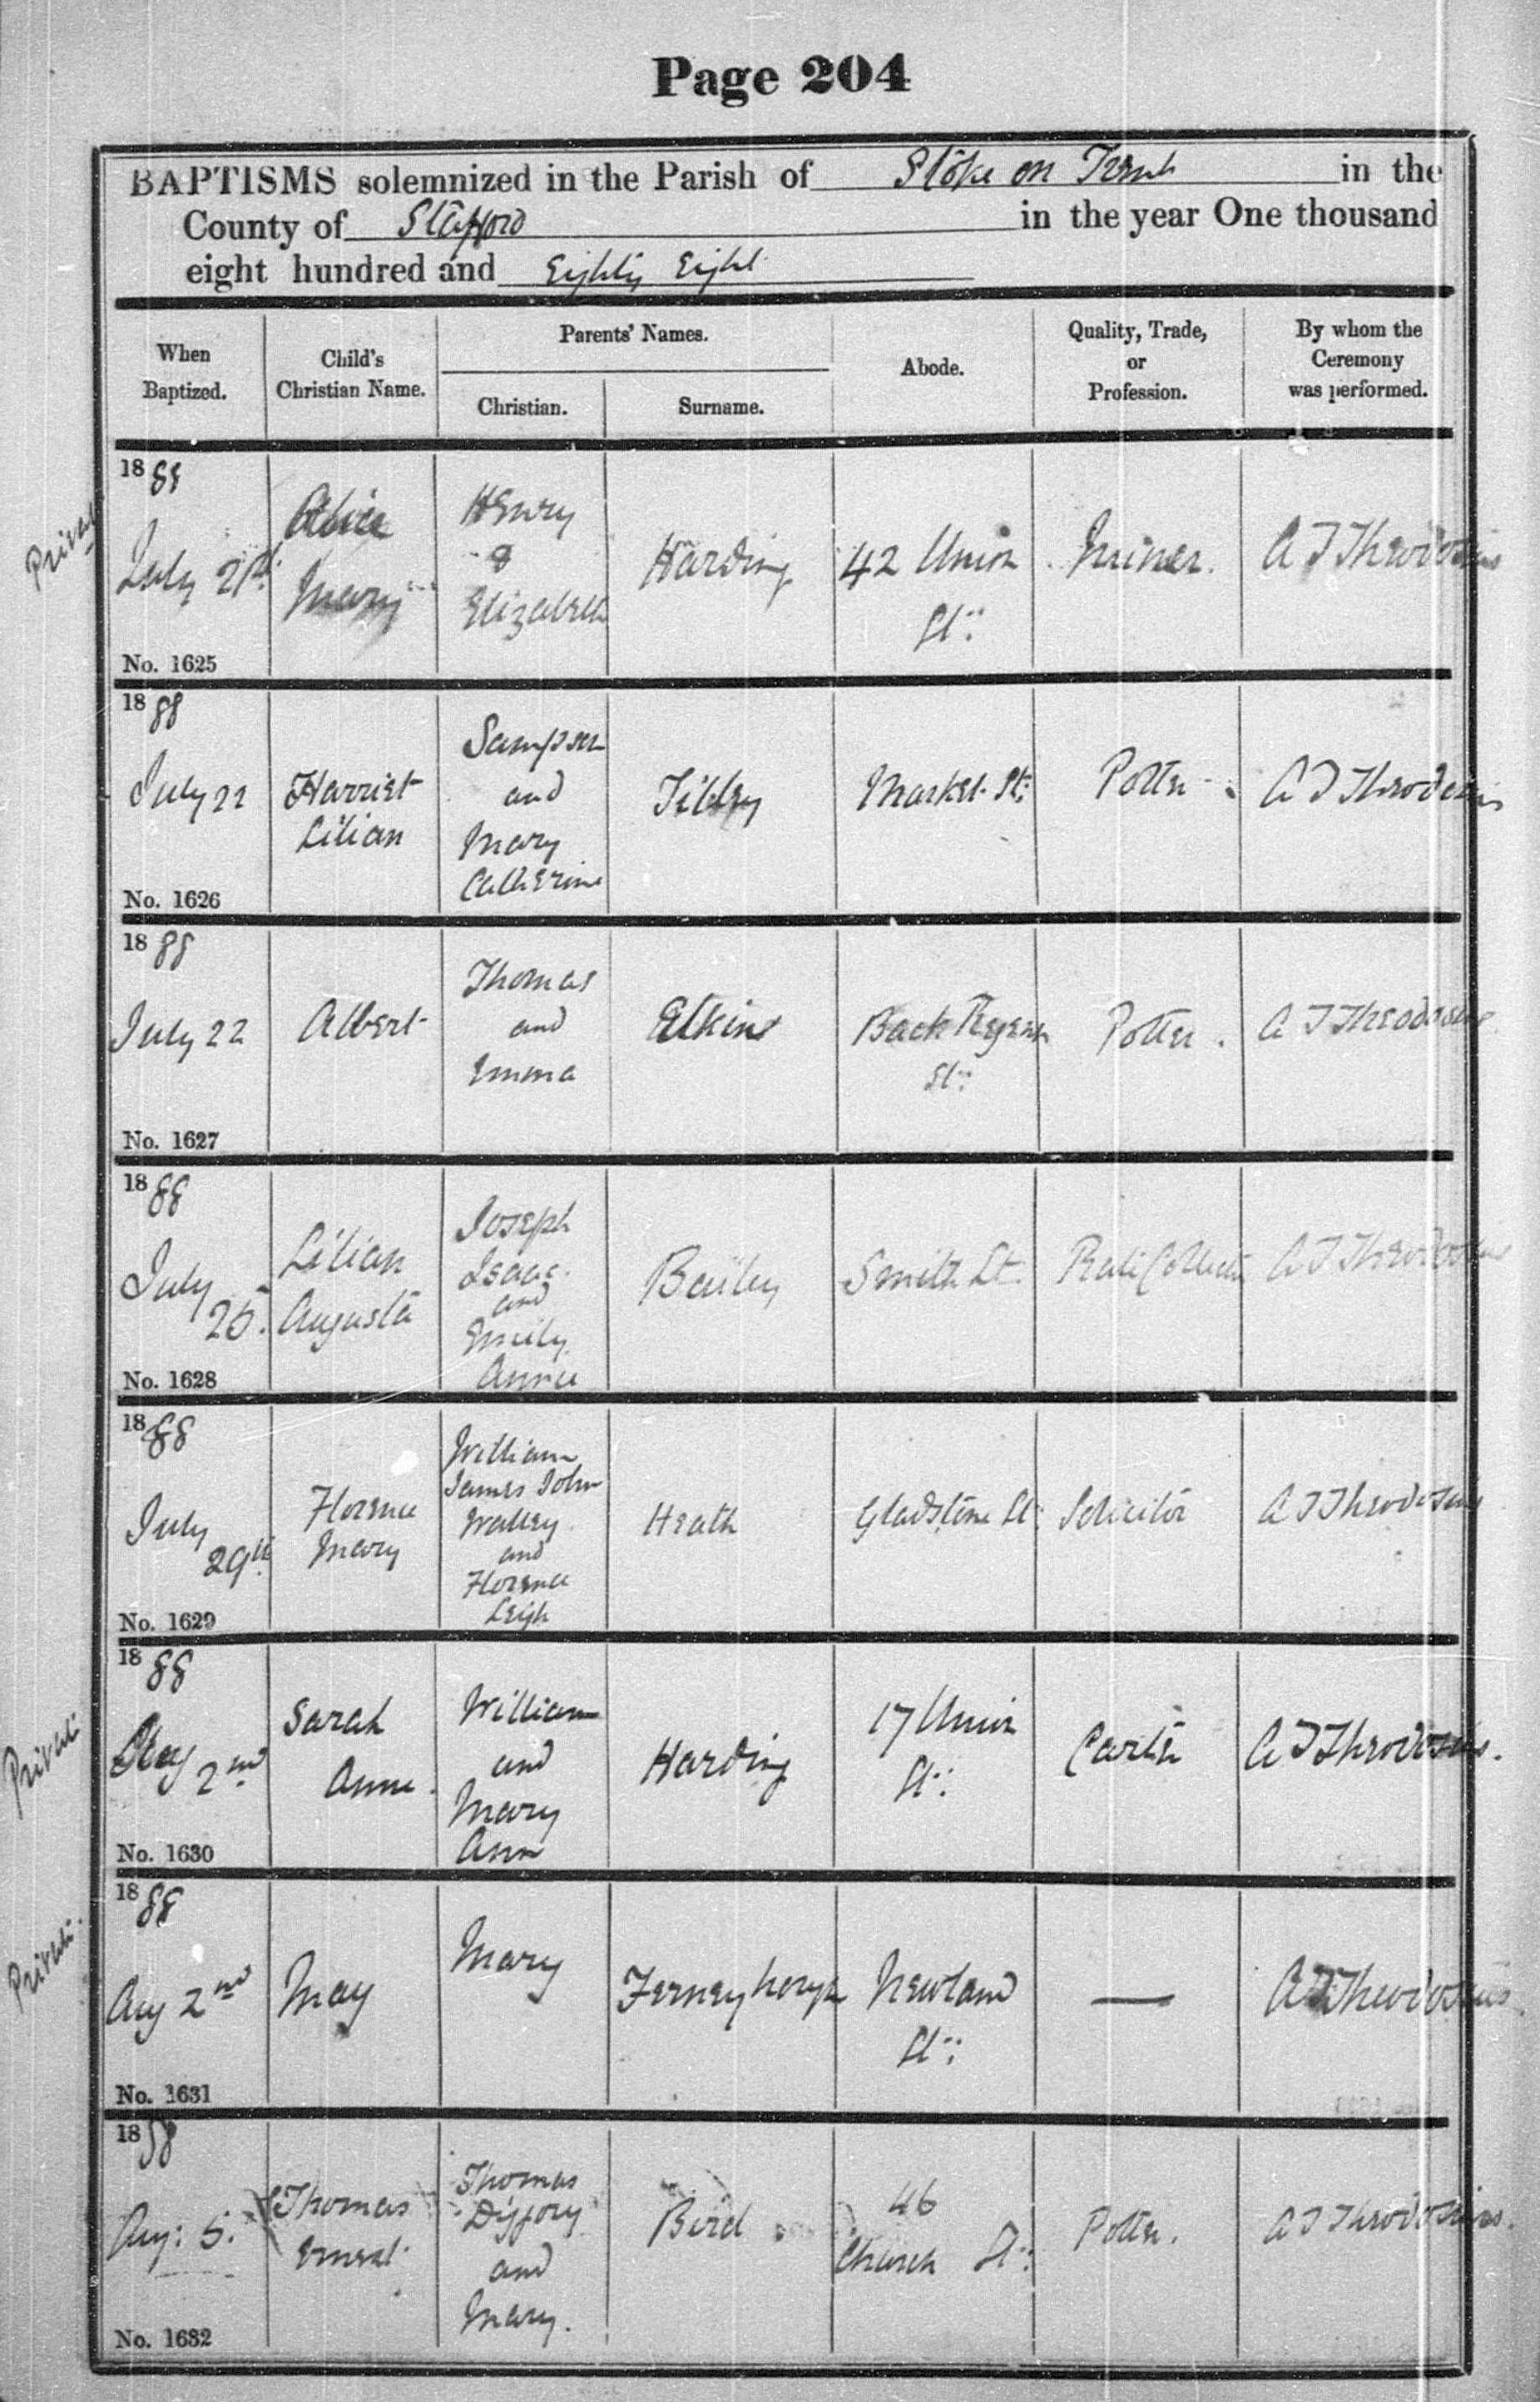 Page 204
BAPTISMS solemnized in the Parish of Stoke on Trent in the
County of Stafford in the year One thousand
eight hundred and Eighty Eight
When Baptized.
Child's Christian Name.
Parents' Names.
Christian.
Surname.
Abode.
Quality, Trade, or Profession.
By whom the Ceremony was performed.
Private
1888
July 21st
No. 1625
Alice
Mary
Henry
&
Elizabeth
Harding
42 Union
St:
Miner.
A T Theodosius
1888
July 22
No. 1626
Harriet
Lilian
Sampson
and
Mary
Catherine
Tilley
Market St:
Potter
A T Theodosius
1888
July 22
No. 1627
Albert
Thomas
and
Emma
Elkins
Back Regent
St:
Potter.
A T Theodosius
1888
July
25.
No. 1628
Lilian
Augusta
Joseph
Isaac
and
Emily
Annie
Bailey
Smith St.
Rate Collector
A T Theodosius
1888
July
29th
No. 1629
Florence
Mary
William
James John
Walley
and
Florence
Leigh
Heath
Gladstone St:
Solicitor
A T Theodosius
Private
1888
2nd
No. 1630
Sarah
Anne.
William
and
Mary
Ann
Harding
17 Union
St:
Carter
A T Theodosius.
Private.
1888
Aug 2nd
No. 1631
May
Mary
Ferneyhough
Newland
St:
—
A T Theodosius
1888
Aug: 5.
No. 1632
Thomas
Ernest
Thomas
Diggory
and
Mary.
Bird
46
Church St:
Potter.
A T Theodosius.